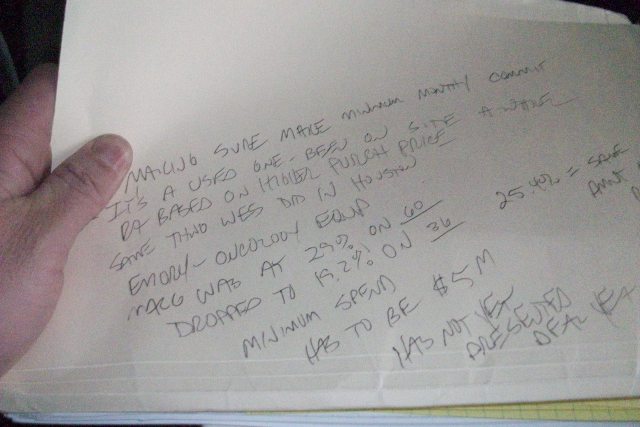 MAKING SURE MAKE MINIMUM MONTHLY COMMIT
IT'S A USED ONE - BEEN ON SITE A WHILE
BASED ON HIGHER PURCH PRICE
SAME THING WES DID IN HOUSTON
EMORY - ONCOLOGY EQUIP
WAS AT 29% ON 60
DROPPED TO 19.2% ON 36
25.4% = SAME
AMNT
MINIMUM SPEND
HAS TO BE $5M
HAS NOT YET
PRESENTED
DEAL YET